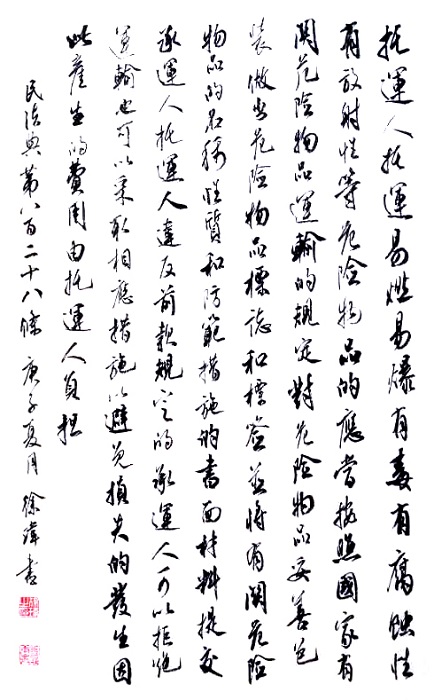 托運人托運易燃易爆有毒有腐蝕性
有放射性等危險物品的應當按照國家有
関危險物品運輸的規定對危險物品妥善包
裝做出危險物品標誌和標簽並將有関危險
物品的名稱性質和防範措施的書面材料提交
承運人托運人違反前款規定的承運人可以拒絶
運輸也可以采取相應措施以避免損失的發生因
此產生的費用由托運人負担
民法典第八百二十八條 庚子夏月 徐偉書